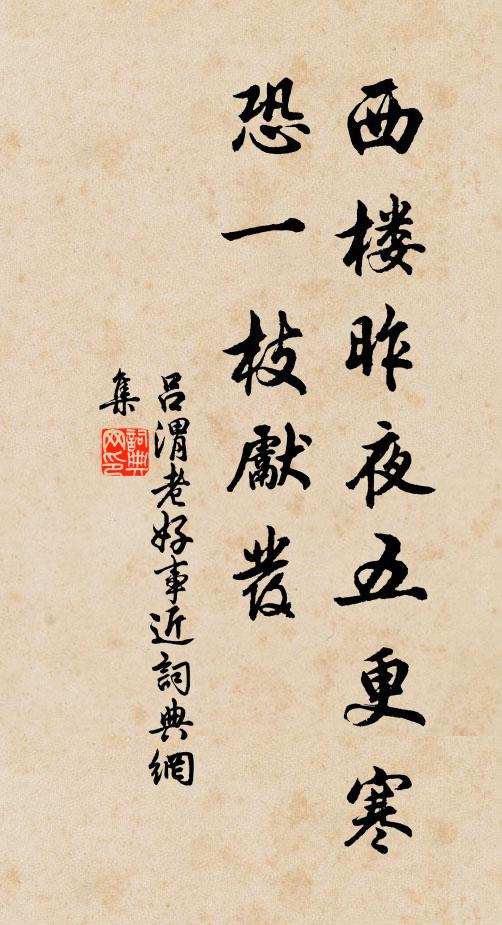 西楼昨夜五更寒
恐一枝獻發
吕渭老好事近詞典網
集
詞典網印